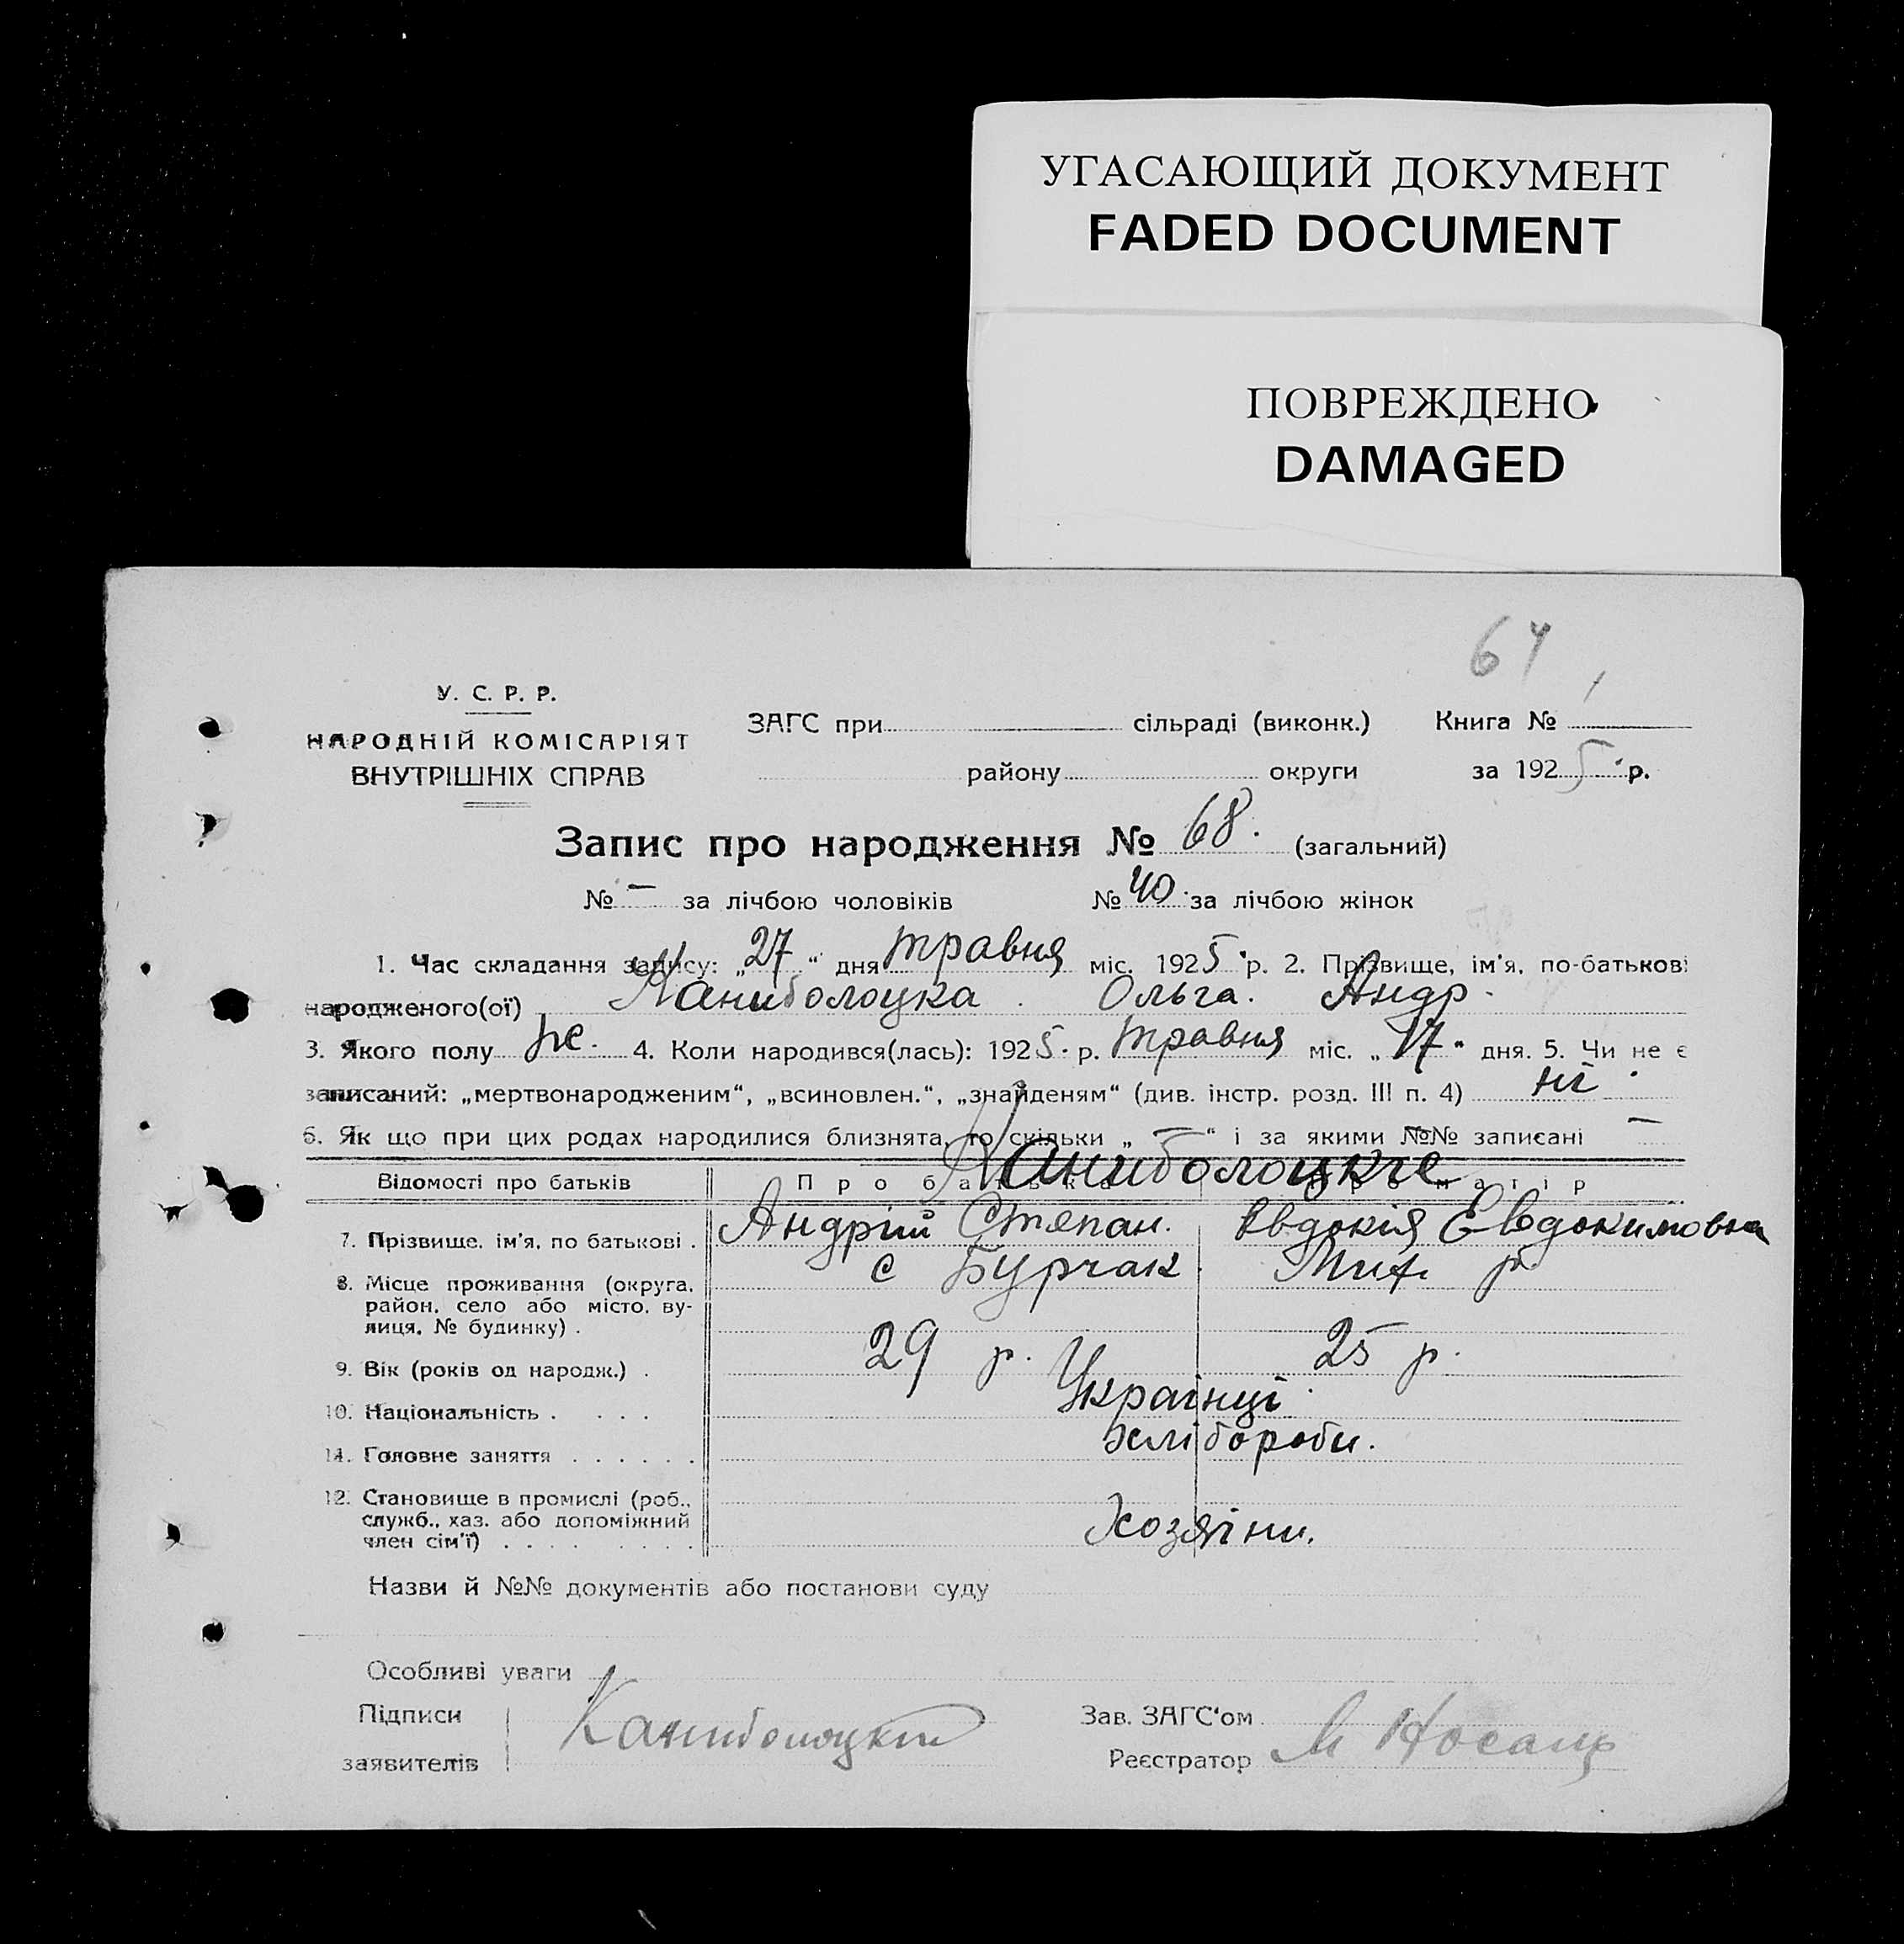 УГАСАЮЩИЙ ДОКУМЕНТ
FADED DOCUMENT
ПОВРЕЖДЕНО
DAMAGED
64
У. С. Р. Р.
НАРОДНІЙ КОМІСАРІЯТ
ВНУТРІШНІХ СПРАВ
ЗАГС при сільраді (виконк.) Книга №
району округи за 1925 р.
Запис про народження № 68. (загальний)
№ — за лічбою чоловіків № 40 за лічбою жінок
1. Час складання запису: „27“ дня травня міс. 1925 р. 2. Прізвище, ім'я, по-батькові
народженого(ої) Каниболоцка Ольга. Андр.
3. Якого полу же. 4. Коли народився(лась): 1925. р. травня міс. „17“ дня. 5. Чи не є
записаний: „мертвонародженим“, „всиновлен.“, „знайденям“ (див. інстр. розд. III п. 4) ні
6. Як що при цих родах народилися близнята, то скільки „—“ і за якими №№ записані —
Каниболоцкіе
Відомості про батьків Про батька Про матір
7. Прізвище, ім'я, по батькові . Андрій Степан. Євдокія Євдокимовна
8. Місце проживання (округа, с Бурчак Мих. р
район, село або місто, ву-
лиця, № будинку) .
9. Вік (років од народж.) . 29 р. 25 р.
10. Національність . . . . Українці
11. Головне заняття . . . . . . хлібороби.
12. Становище в промислі (роб.,
служб., хаз. або допоміжний Хозяіни.
член сім'ї) . . . . . . . .
Назви й №№ документів або постанови суду
Особливі уваги
Підписи Каниболоцкий Зав. ЗАГС'ом
заявителів Реєстратор М Носань